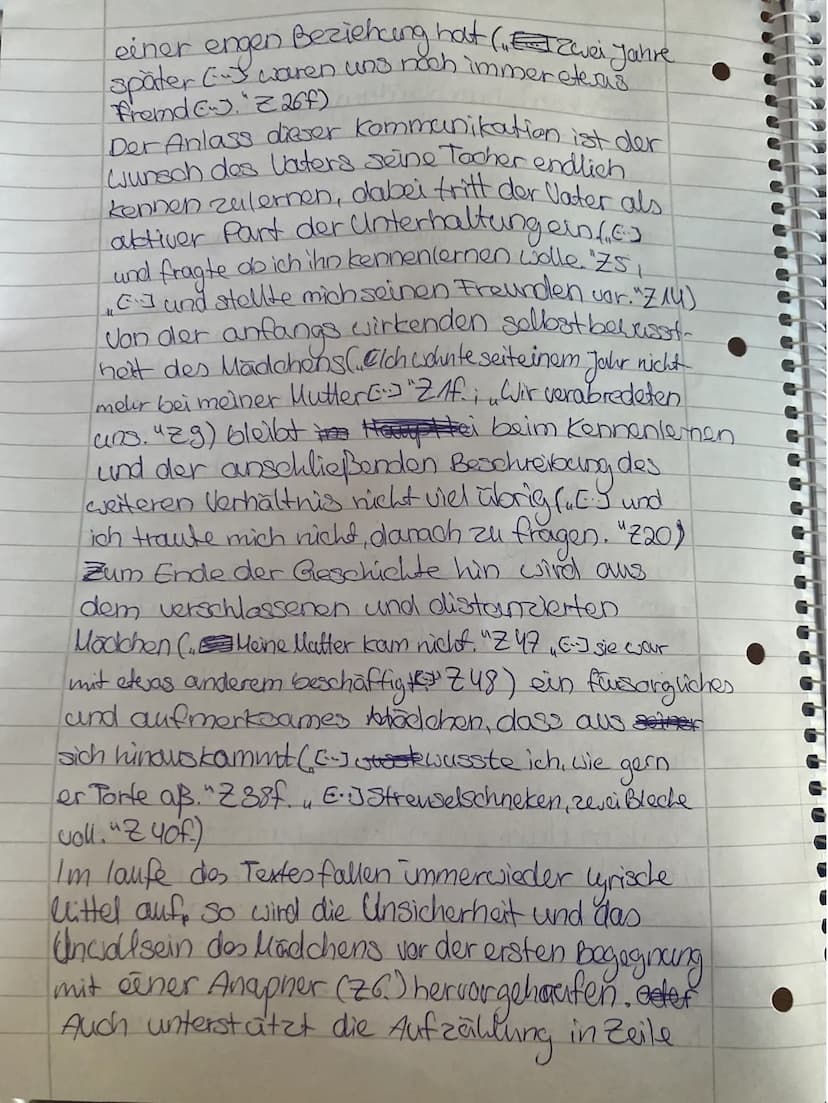 einer engen Beziehung hat („Zwei Jahre
später [...] waren uns noch immer etwas
fremd [...]." Z 26f)
Der Anlass dieser Kommunikation ist der
Wunsch des Vaters seine Tocher endlich
kennen zulernen, dabei tritt der Vater als
aktiver Part der Unterhaltung ein („[...]
und fragte ob ich ihn kennenlernen wolle." Z5,
„[...] und stellte mich seinen Freunden vor." Z 14)
Von der anfangs wirkenden selbstbewusst-
heit des Mädchens („Ich wohnte seit einem Jahr nicht
mehr bei meiner Mutter [...]" Z 1f.; „Wir verabredeten
uns." Z9) bleibt beim Kennenlernen
und der anschließenden Beschreibung des
weiteren Verhältnis nicht viel übrig („[...] und
ich traute mich nicht, danach zu fragen. "Z20)
Zum Ende der Geschichte hin wird aus
dem verschlassenen und distanzierten
Mädchen („Meine Mutter kam nicht." Z 47 „[...] sie war
mit etwas anderem beschäftigt Z 48) ein fürsorgliches
und aufmerksames Mädchen, dass aus
sich hinauskammt („[...] wusste ich, wie gern
er Torte aß." Z 38f. „[...] Streuselschneken, zwei Bleche
voll." Z 40f.)
Im laufe des Textes fallen immerwieder lyrische
Mittel auf, so wird die Unsicherheit und das
Unwolsein des Mädchens vor der ersten Begegnung
mit einer Anapher (Z6.) hervorgehoufen.
Auch unterstützt die Aufzählung in Zeile